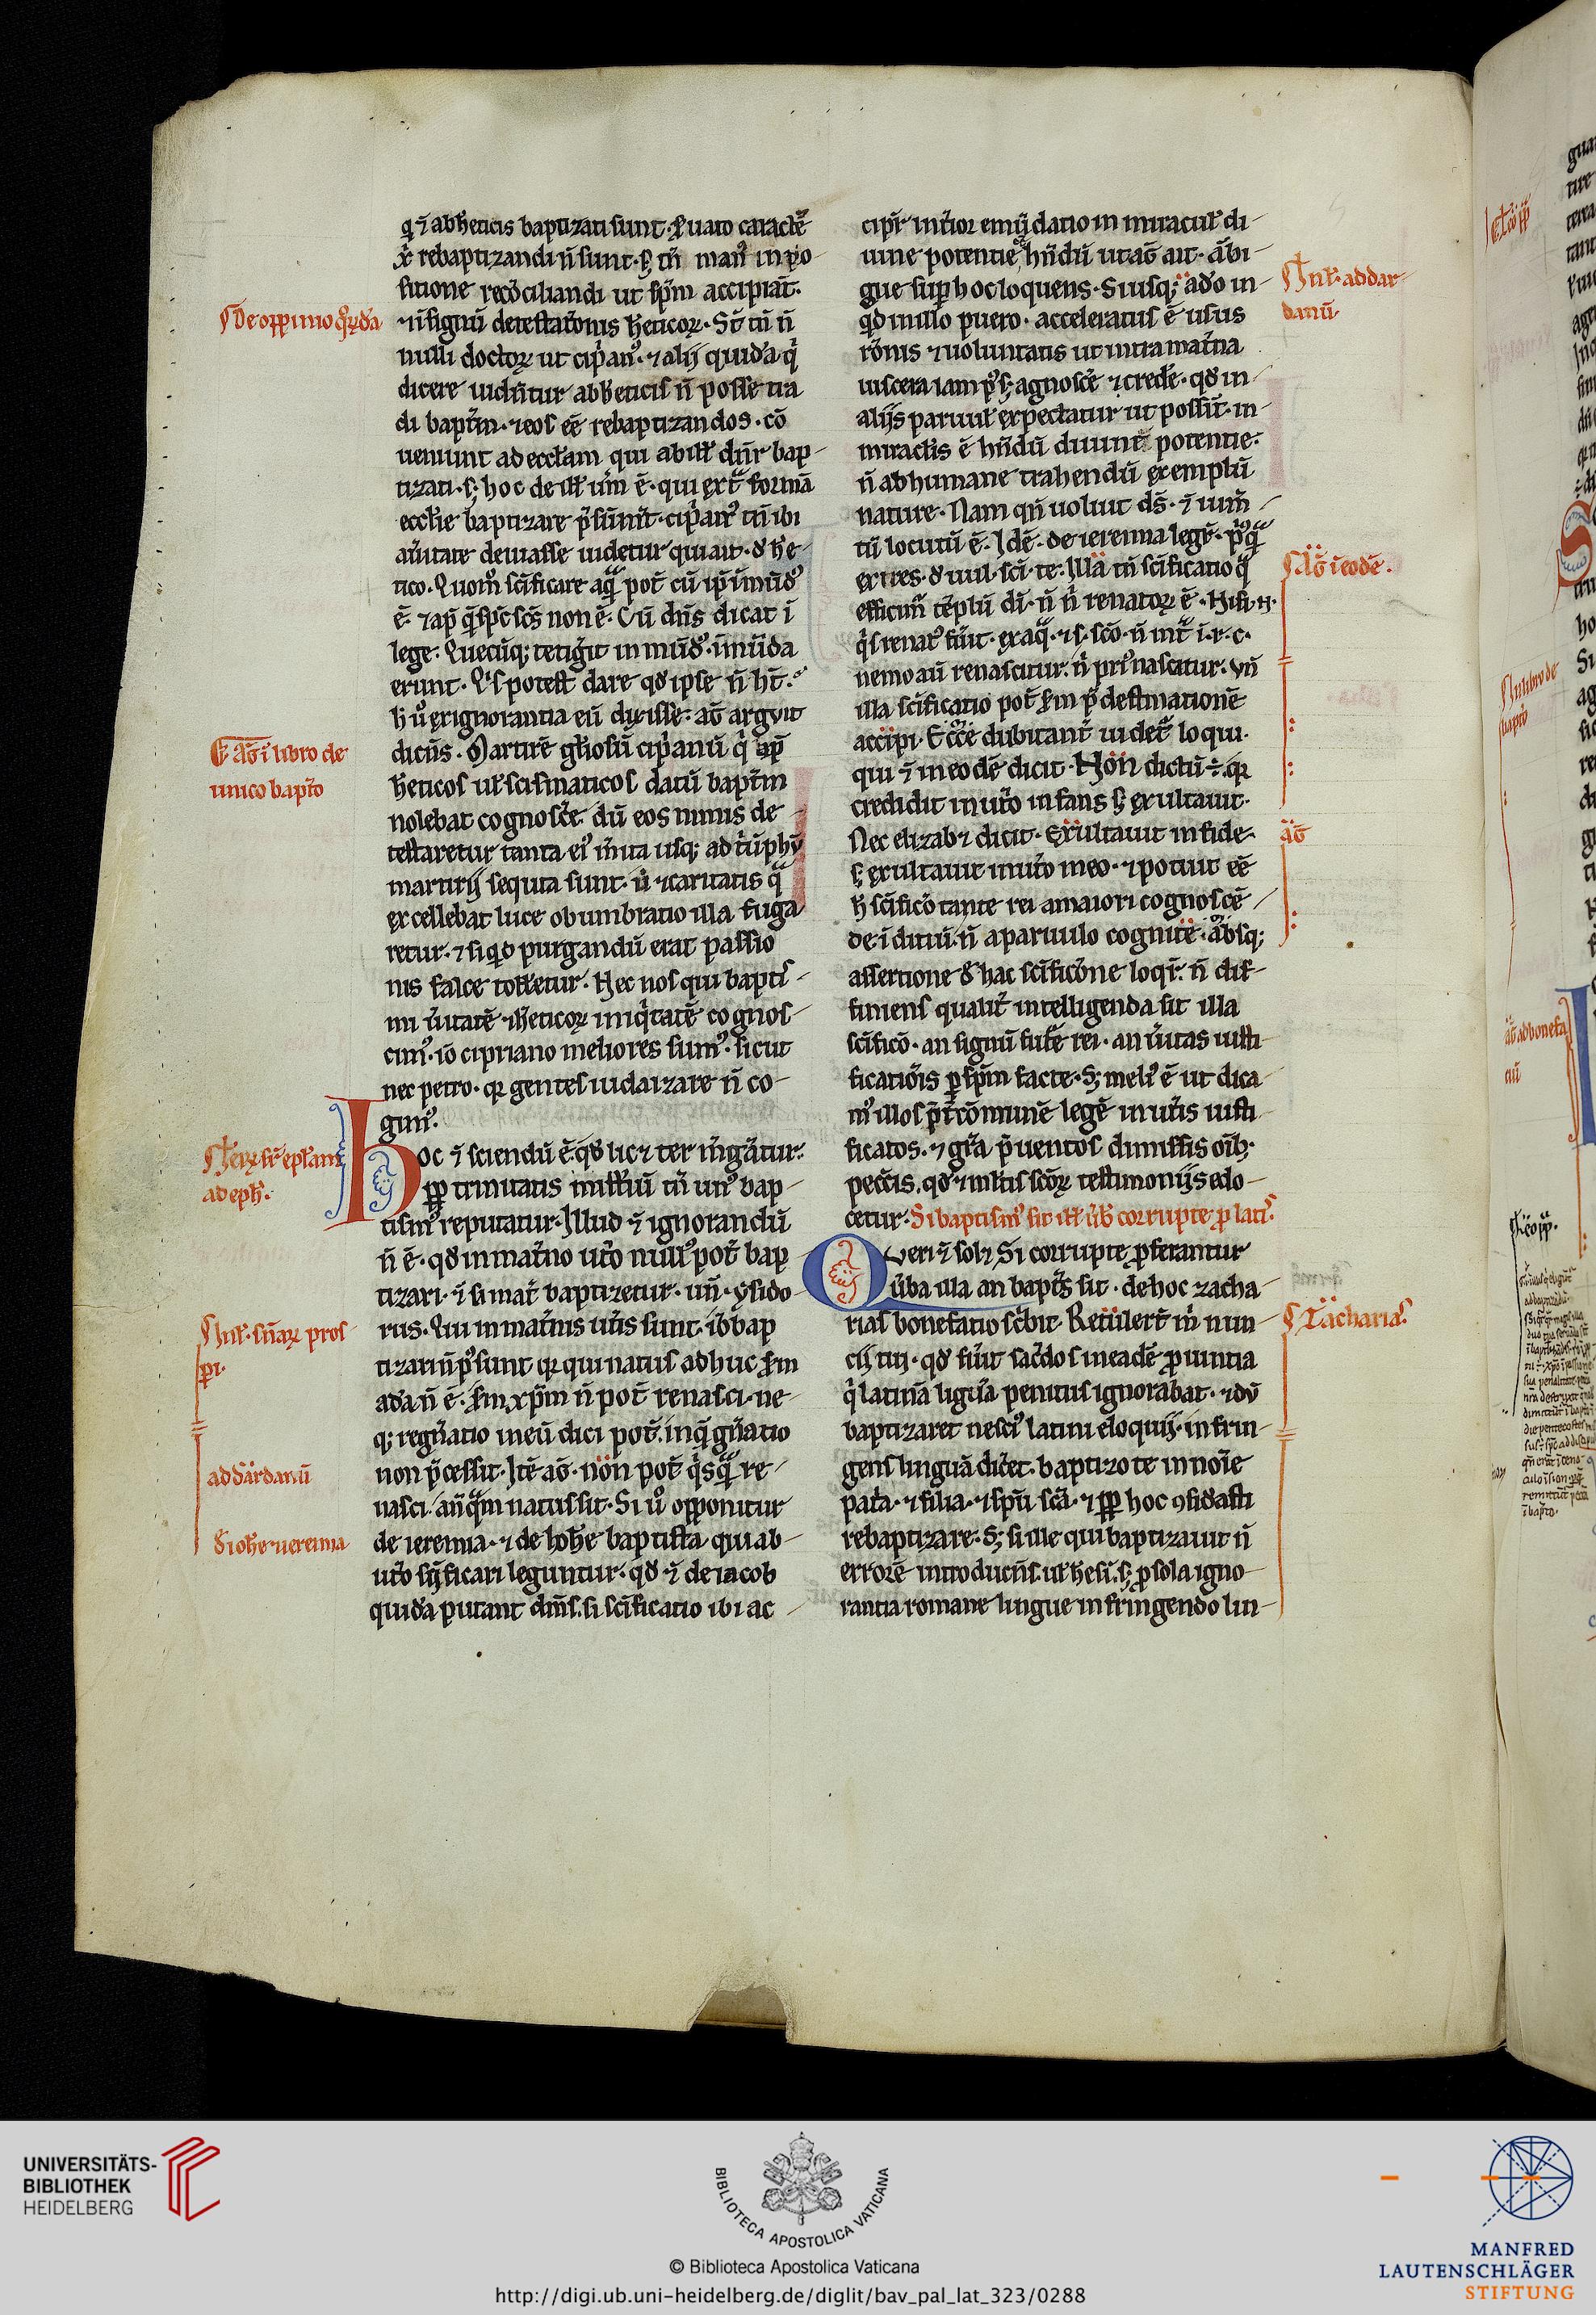 q ⁊ ab hẽticis baptizati sunt. ẞuato caractẽ
xp̃i rebaptizandi ñ sunt. s; tñ man᷒ inpo
sitione recõciliandi ut sp̃m accipiãt.
⁊ in signũ detestat̃onis heticoꝝ. St̃ tñ ñ
nulli doctoꝝ ut cip̃an᷒. ⁊ alij quidã q̃
dicere uidñtur ab heticis ñ posse tra
di bapt̃m. ⁊ eos eẽ rebaptizandos. cõ
ueniunt ad eccl̃am qui ab ill̃ dñr bap
tizati. s; hoc de ill̃ uim ẽ. qui ext̃ formã
eccl̃ie baptizare p̃sũnit. cip̃an᷒ tñ ibi
aũitate deuiasse uidetur qui ait. de he
tico. Quom̃ sc̃ificare aq̃ pot̃ cũ ip̃e ĩmũd᷒
ẽ. ⁊ ap̃ q̃ sp̃c sc̃s non ẽ. Cũ dñs dicat ĩ
lege. Quecũq; tetig̃it inmũd᷒. ĩmũda
erunt. Q̃s potest dare qd̃ ipse ñ ht̃.
h̃ ũ ex ignorantia eũ dixisse. ag̃ arguit
dicñs. Martirẽ gl̃iosũ cip̃anũ q̃ ap̃
heticos ul̃ scismaticos datũ bapt̃m
nolebat cognosc̃e. dũ eos nimis de
testaretur tanta ei᷒ m̃ita usq; ad t̃ũphũ
martirij sequta sunt. ut ⁊ caritatis q̃
excellebat luce obumbratio illa fuga
retur. ⁊ si qd̃ purgandũ erat passio
nis falce tolletur. Nec nos qui baptis
mi ũitatẽ ⁊ heticoꝝ iniq̃tatẽ cognos
cim᷒. iõ cipriano meliores sum᷒. sicut
nec petro. qꝛ gentes iudaizare ñ co
gim᷒.
Hoc ⁊ sciendũ ẽ. qd̃ lic⁊ ter m̃gãtur.
ꝓpt̃ trinitatis misteriũ tñ un᷒ bap
tism᷒ reputatur. Illud ⁊ ignorandũ
ñ ẽ. qd̃ in mat̃no ut̃o null᷒ pot̃ bap
tizari. ⁊ si mat̃ baptizetur. uñ. ysido
rus. Qui in mat̃nis ut̃is sunt. iõ bap
tizari ñ p̃sunt qꝛ qui natus adhuc s̃m
adã ñ ẽ. s̃m xp̃m ñ pot̃ renasci. ne
q; reg̃natio in eũ dici pot̃. in q̃ gñatio
non p̃cessit. Itẽ ag̃. nõn pot̃ q̃sq̃ re
nasci. anq̃m natus sit. Si ũ opponitur
de ieremia. ⁊ de iohe baptista qui ab
ut̃o sc̃ificari leguntur. qd̃ ⁊ de iacob
quidã putant dic̃ns. si sc̃ificatio ibi ac
cipr̃ int̃ior emũdatio in miracul̃ di
uine potentie hñdũ ut ag̃ ait. ãbi
gue sup hoc loquens. Si usq; adõ in
q̃d in illo puero. acceleratus ẽ usus
rõnis ⁊ uoluntatis ut intra mat̃na
uiscera iam poss; agnosc̃e ⁊ cred̃e. qd̃ in
alijs paruul̃ expectatur ut possit. in
miraclis ẽ hñdũ diuine potentie.
ñ ab humane trahendũ exemplũ
nature. Nam qñ uoluit ds̃. ⁊ ium̃
tũ locutũ ẽ. Idẽ. de ieremia legr̃. p̃usq̃
exires. de uul. sci. te. Illã tñ sc̃ificatio q̃
efficim̃ tẽplũ di. ñ ñ renatoꝝ ẽ. Nisi. n.
q̃s renat᷒ fũit. ex aq̃. ⁊ s. sc̃o. ñ int̃ i. r. c.
nemo aũ renascitur. ñ pri᷒ nascatur. Vñ
illa sc̃ificatio pot̃ s̃m p̃destinationẽ
accipi. Ecce dubitant̃ uidet̃ loqui.
qui ⁊ in eodẽ dicit. Nõn dictũ ÷ qꝛ
credidit in ut̃o infans s; exultauit.
Nec elizab⁊ dicit. Exultauit in fide.
s; exultauit in ut̃o meo. ⁊ potuit eẽ
h̃ sc̃ificõ tante rei a maiori cognoscẽ
de. ĩ diuiñ. ñ a paruulo cognitẽ. absq;
assertione de hac sc̃ificõne loqr̃. ñ dif
finiens qualit̃ intelligenda sit illa
sc̃ificõ. an signũ fut̃e rei. an ũitas iusti
ficatiõis ꝑ sp̃m facte. S; meli᷒ ẽ ut dica
m᷒ illos p̃t̃ cõmunẽ legẽ in ut̃is iusti
ficatos. ⁊ gr̃a p̃uentos dimissis oĩb;
pecc̃is. qd̃ ⁊ m̃ltis sc̃oꝝ testimonijs edo
cetur. Si baptism᷒ sit ill̃ ũb̃ corrupte ꝓlatis.
Queri ⁊ sol⁊ Si corrupte ꝓferantur
ũba illa an bapt᷒s sit. de hoc zacha
rias bonefatio sc̃bit. Retulert̃ m̃ nun
cij tui. qd̃ fũit sac̃dos in eadẽ ꝓuintia
q̃ latinã liguã penitus ignorabat. ⁊ dũ
baptizaret nesci᷒ latini eloquij. infrin
gens linguã dic̃et. baptizo te in noĩe
patia. ⁊ filia. ⁊ sp̃u sc̃a. ⁊ ꝓp̃ hoc 9sid̃asti
rebaptizare. S; si ille qui baptizauit ñ
errorẽ introducñs. ul̃ hesĩ. s; ꝓ sola igno
rantia romane lingue infringendo lin
De oppinio quoꝝdã
Ag̃ ĩ libro de
unico bapt̃o
Ier. sr̃ epl̃am
ad eph̃.
In l. sñaꝝ pros
ꝑi.
ad dardanũ
Si ohẽ ⁊ ieremia
In l. ad dar
danũ.
Ag̃ ĩ eodẽ.
ag̃
Zacharias.
UNIVERSITÄTS-
BIBLIOTHEK
HEIDELBERG
BIBLIOTECA APOSTOLICA VATICANA
© Biblioteca Apostolica Vaticana
http://digi.ub.uni-heidelberg.de/diglit/bav_pal_lat_323/0288
MANFRED
LAUTENSCHLÄGER
STIFTUNG